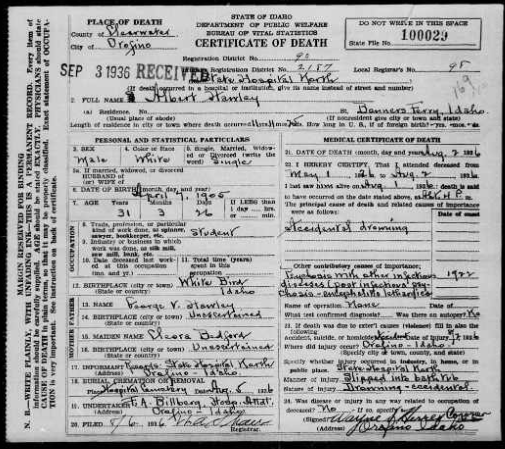 STATE OF IDAHO
DEPARTMENT OF PUBLIC WELFARE
BUREAU OF VITAL STATISTICS
CERTIFICATE OF DEATH
DO NOT WRITE IN THIS SPACE
State File No. 100029
PLACE OF DEATH
County of Clearwater
City of Orofino
SEP 3 1936 RECEIVED
Registration District No.
Registration District No. 2157
Local Registrar's No. 95
State Hospital North
(If death occurred in a hospital or institution, give its name instead of street and number)
2. FULL NAME Albert Hawley
(a) Residence, No. St. Bonners Ferry, Idaho.
(Usual place of abode) (If nonresident give city or town and state)
Length of residence in city or town where death occurred How long in U. S., if of foreign birth? yrs. mos. ds.
MARGIN RESERVED FOR BINDING
N. B.—WRITE PLAINLY, WITH UNFADING INK—THIS IS A PERMANENT RECORD. Every item of
information should be carefully supplied. AGE should be stated EXACTLY. PHYSICIANS should state
CAUSE OF DEATH in plain terms, so that it may be properly classified. Exact statement of OCCUPA-
TION is very important. See instructions on back of certificate.
PERSONAL AND STATISTICAL PARTICULARS
3. SEX Male
4. Color or Race White
5. Single, Married, Widowed, or Divorced (write the word) Single
5a. If married, widowed, or divorced
HUSBAND of
(or) WIFE of
6. DATE OF BIRTH (month, day, and year) April 7, 1905
7. AGE Years 31 Months 3 Days 26 If LESS than 1 day hrs. or min.
OCCUPATION
8. Trade, profession, or particular kind of work done, as spinner, sawyer, bookkeeper, etc. Student
9. Industry or business in which work was done, as silk mill, saw mill, bank, etc.
10. Date deceased last worked at this occupation (month and year)
11. Total time (years) spent in this occupation
12. BIRTHPLACE (city or town) White Bird
(State or country) Idaho
FATHER
13. NAME George V. Hawley
14. BIRTHPLACE (city or town) Unascertained
(State or country)
MOTHER
15. MAIDEN NAME Bedford
16. BIRTHPLACE (city or town) Unascertained
(State or country)
17. INFORMANT State Hospital North
Orofino - Idaho
18. BURIAL, CREMATION OR REMOVAL
Place Hospital Cemetery Date Aug. 5 1936
19. UNDERTAKER F. A. Billberg, Hosp. Attdt.
Orofino - Idaho
20. FILED 8/6, 1936
Registrar.
MEDICAL CERTIFICATE OF DEATH
21. DATE OF DEATH (month, day and year) Aug. 2 1936
22. I HEREBY CERTIFY, That I attended deceased from
May 1 to Aug. 2, 1936
I last saw him alive on Aug 1 1936; death is said
to have occurred on the date stated above, at
The principal cause of death and related causes of importance were as follows: Date of onset
Accidental drowning
Other contributory causes of importance:
Psychosis with other infectious 1922
diseases (post infectious psy-
chosis - encephalitis lethargica)
Name of operation None Date of
What test confirmed diagnosis? Was there an autopsy? No
23. If death was due to external causes (violence) fill in also the following:
Accident, suicide, or homicide? Date of injury
Where did injury occur? Orofino - Idaho
(Specify city or town, county, and state)
Specify whether injury occurred in industry, in home, or in public place.
State Hospital North
Manner of injury Slipped into bath tub
Nature of injury Drowning - accidental
24. Was disease or injury in any way related to occupation of deceased? No
(Signed) Coroner
(Address) Orofino Idaho